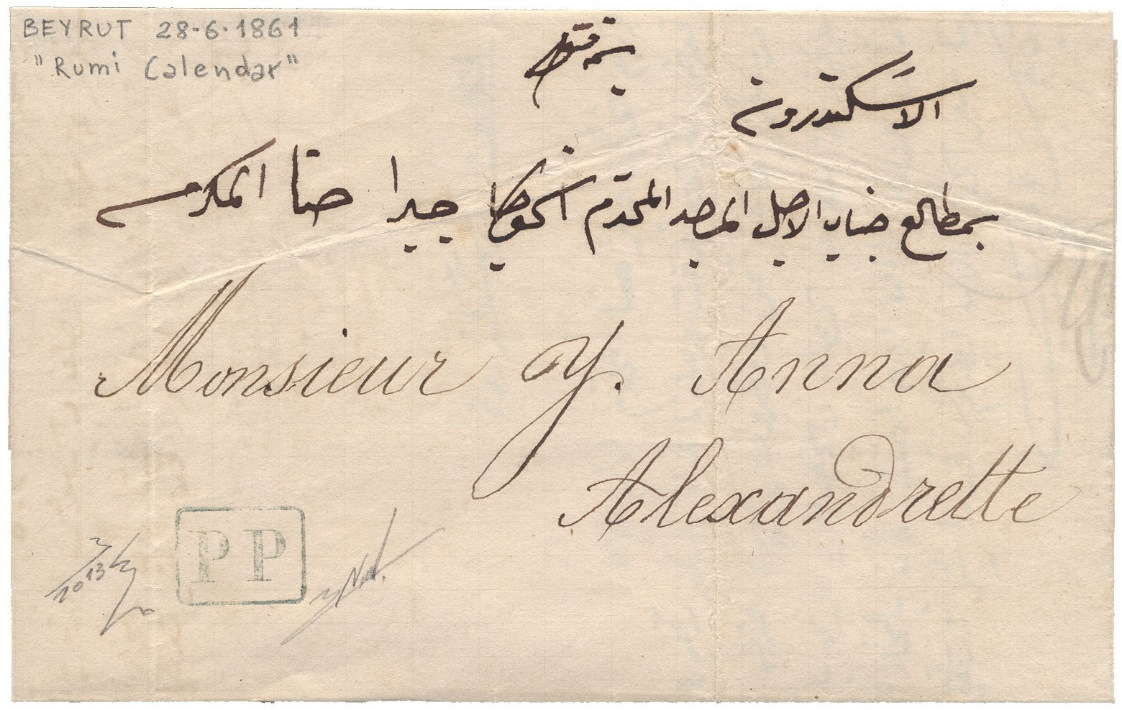 BEYRUT 28-6-1861
"Rumi Calendar"
الاسكندرون
بمطالع جناب الاجل الامجد المحترم الخواجا جبرا حنا المكرم
Monsieur Y. Anna
Alexandrette
PP